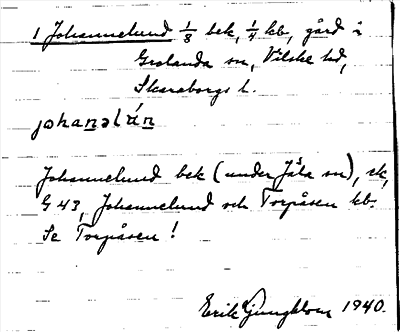 1 Johannelund 1/8 bek, 1/4 kb, gård i
Grolanda sn, Vilske hd,
Skaraborgs l.
johanəlún
Johannelund bek (under Jäla sn), ek,
G 43, Johannelund och Torpåsen kb.
Se Torpåsen!
Erik Ljungblom 1940.